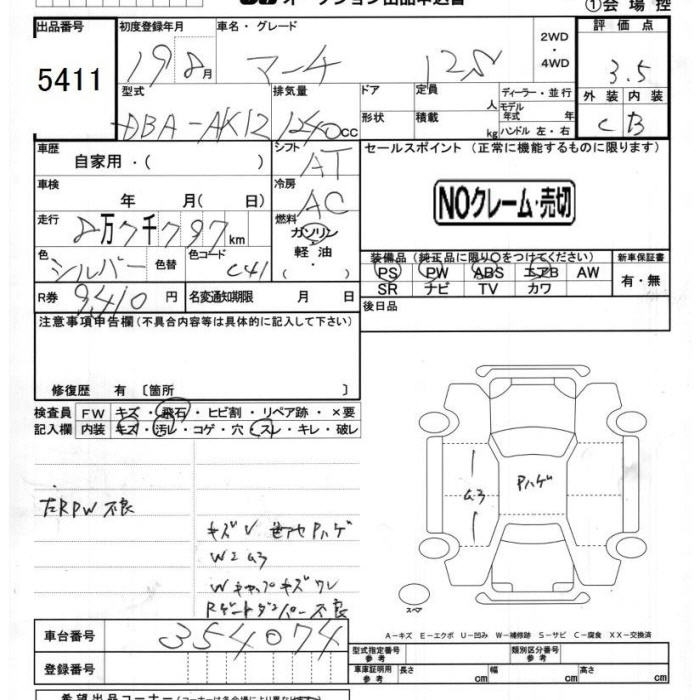 オークション出品申込書
①会場控
出品番号
5411
初度登録年月
19 8月
車名・グレード
マーチ 12S
2WD
・
4WD
評価点
3.5
外装 内装
C B
型式
DBA-AK12
排気量
1240cc
ドア
形状
定員
人
積載
kg
ディーラー・並行
モデル年式 年
ハンドル 左・右
車歴
自家用・( )
シフト
AT
セールスポイント (正常に機能するものに限ります)
NOクレーム・売切
車検
年 月(日)
冷房
AC
走行
8万7千797km
燃料
ガソリン
軽油
( ・ )
色
シルバー
色替
色コード
C41
装備品 (純正品に限り〇をつけてください)
PS PW ABS エアB AW
SR ナビ TV カワ
新車保証書
有・無
R券
9,410円
名変通知期限 月 日
後日品
注意事項申告欄 (不具合内容等は具体的に記入して下さい)
修復歴 有 〔箇所 〕
検査員記入欄
FW キズ・飛石・ヒビ割・リペア跡・×要
内装 キズ・汚レ・コゲ・穴・スレ・キレ・破レ
左RPW不良
キズV Pハゲ
W2 G3
Wキャップキズワレ
Rゲートダンパー不良
G3
Pハゲ
スペア
A-キズ E-エクボ U-凹み W-補修跡 S-サビ C-腐食 XX-交換済
車台番号
354074
登録番号
型式指定番号
参考
類別区分番号
参考
車庫証明用
参考
長さ cm 幅 cm 高さ cm
希望出品コーナー